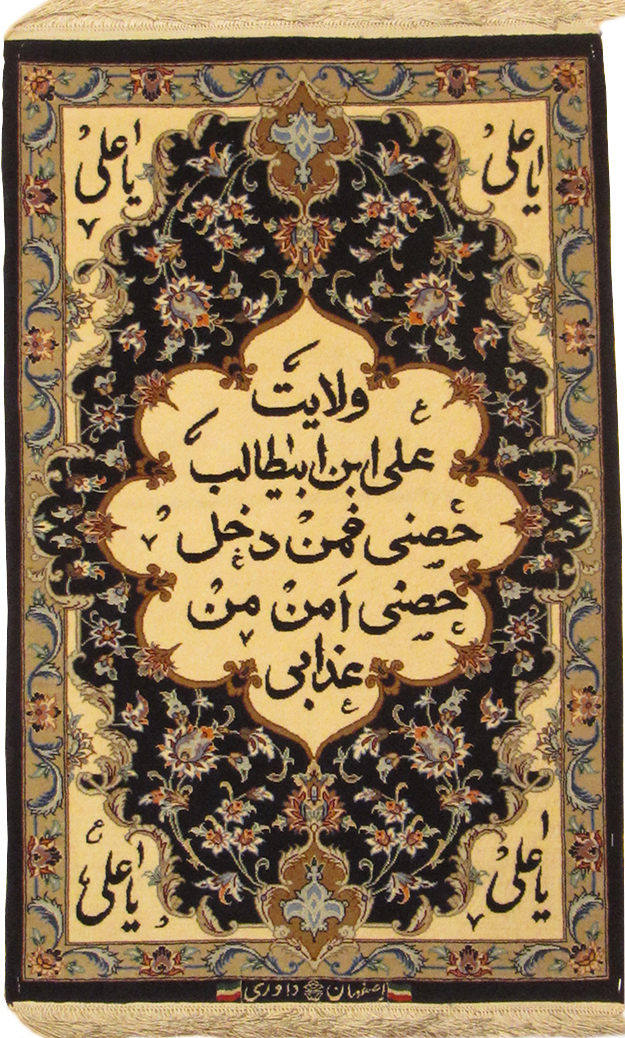 یا علی
یا علی
ولایت
علی ابن ابیطالب
حصنی فمن دخل
حصنی اَمن من
عذابی
یا علی
یا علی
اصفهان داوری